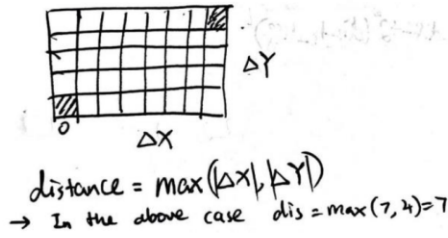 ΔY
0
ΔX
distance = max(|ΔX|, |ΔY|)
→ In the above case dis = max(7, 4) = 7